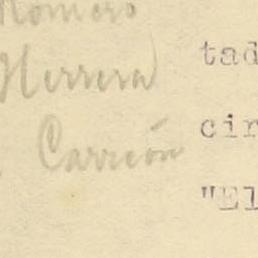 Romero
Herrera
Carrión
tad
cir
"El